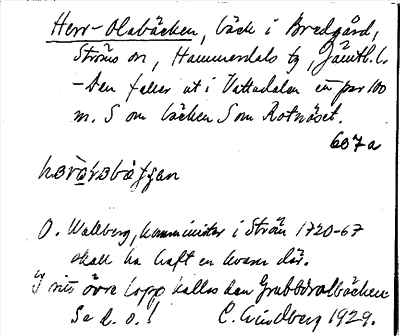 Herr-Olabäcken, bäck i Bredgård,
Ströms sn, Hammerdals tg, Jämtl. l.
- Den faller ut i Vattudalen en par 100
m. S om bäcken S om Rotnäset.
607a
O. Wallberg, komminister i Ström 1720-67
skall ha haft en kvarn där.
I sitt övre lopp kallas den Grubbdalbäcken
Se d. o.! C. Lindberg 1929.